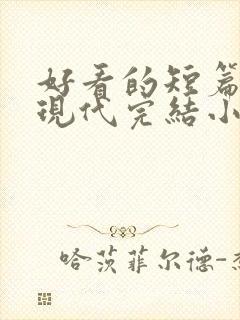 好看的短篇
現代完結小
哈茨菲尔德-杰